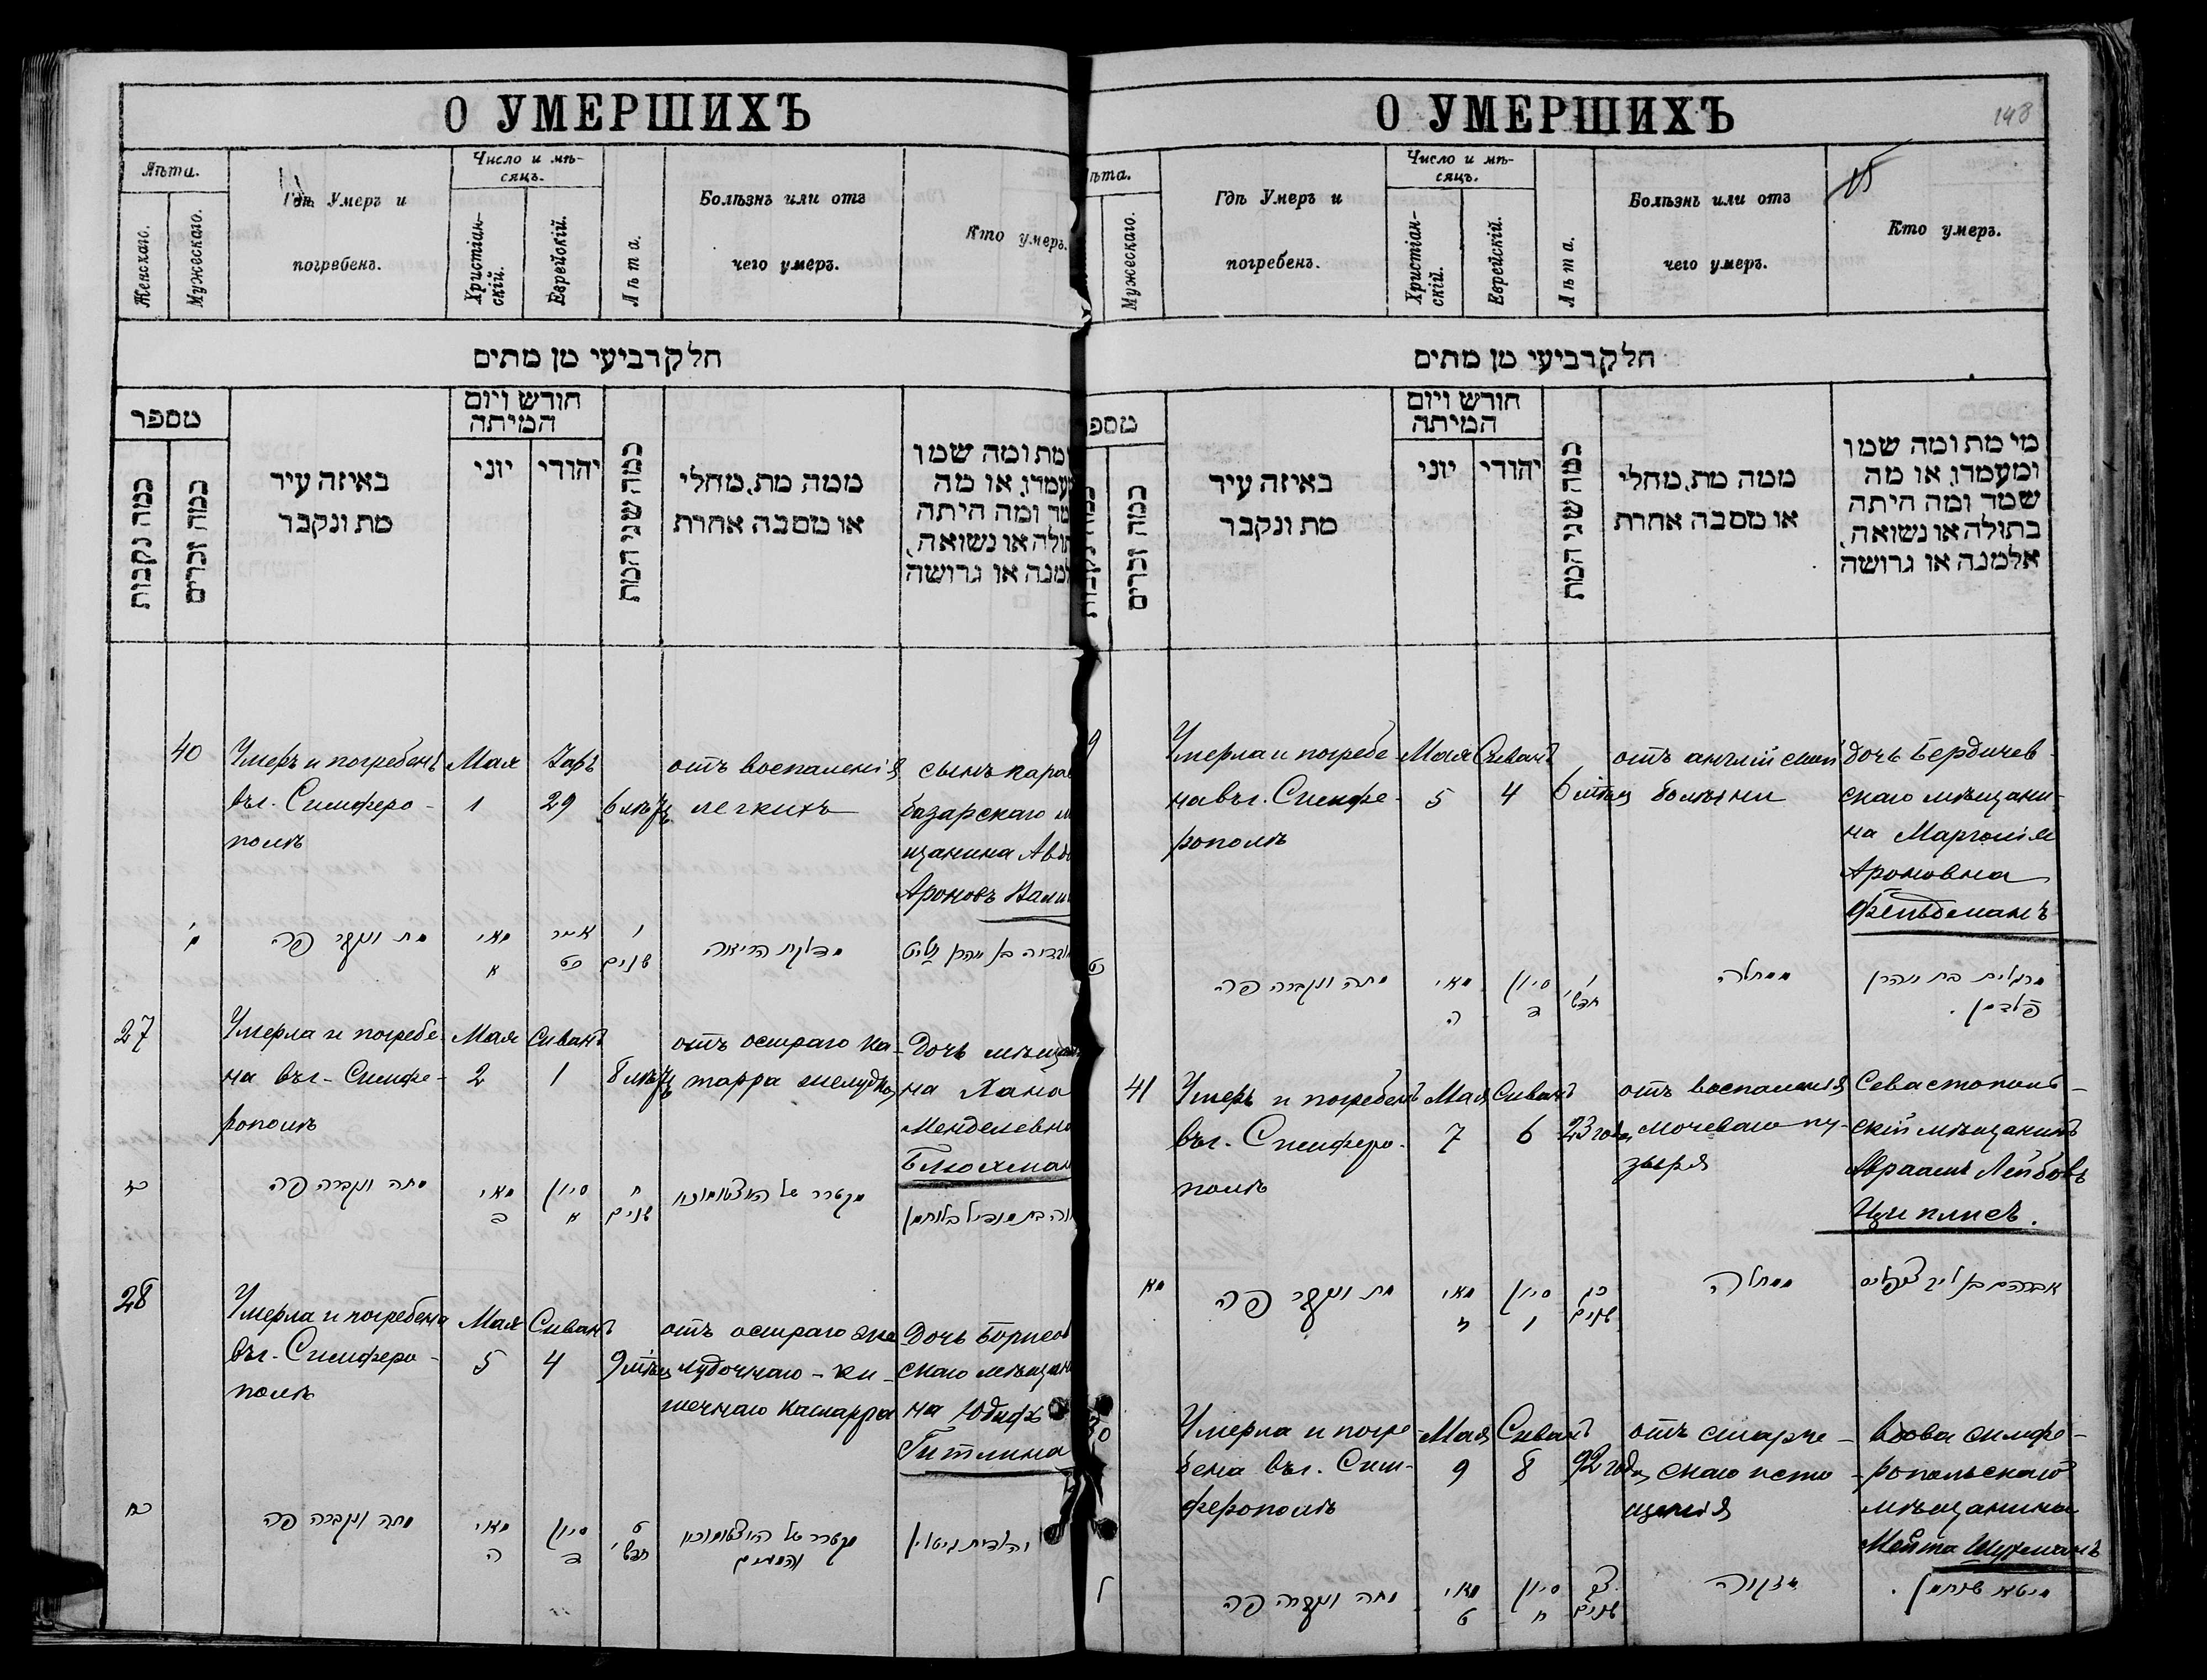 О УМЕРШИХЪ
Лѣта.
Женскаго.
Мужескаго.
Гдѣ Умеръ и
погребенъ.
Число и мѣ-
сяцъ.
Христіан-
скій.
Еврейскій.
Лѣта.
Болѣзнь или отъ
чего умеръ.
Кто умеръ.
חלק רביעי מן מתים
מספר
כמה נקבות
כמה זכרים
באיזה עיר
מת ונקבר
חודש ויום
המיתה
יוני
יהודי
כמה שני המת
ממה מת, מחלי
או מסבה אחרת
מת ומה שמו
ומה היתה
או נשואה,
או גרושה
40
Умеръ и погребенъ
въ г. Симферо-
полѣ
Мая
1
Іаръ
29
6 лѣтъ
отъ воспаленія
легкихъ
сынъ
базарскаго
щанина
Ароновъ
מ
מת ונקבר פה
מאי
א
אייר
כט
ו
שנים
מדלקת הריאה
בן אהרן
27
Умерла и погребе-
на въ г. Симфе-
рополѣ
Мая
2
Сиванъ
1
8 лѣтъ
отъ остраго ка-
тарра желудка
Дочь
на Хана
כז
מתה ונקברה פה
מאי
ב
סיון
א
ח
שנים
בת מענדיל בלוחמן
28
Умерла и погребена
въ г. Симферо-
полѣ
Мая
5
Сиванъ
4
9 мѣсц
отъ остраго же-
лудочнаго-ки-
шечнаго катарра
Дочь
скаго
на Юдифь
Гитлина
כח
מתה ונקברה פה
מאי
ה
סיון
ד
ט
חדשי
יהודית גיטלין
О УМЕРШИХЪ
143
Мужескаго.
Гдѣ Умеръ и
погребенъ.
Число и мѣ-
сяцъ.
Христіан-
скій.
Еврейскій.
Лѣта.
Болѣзнь или отъ
чего умеръ.
Кто умеръ.
חלק רביעי מן מתים
כמה זכרים
באיזה עיר
מת ונקבר
חודש ויום
המיתה
יוני
יהודי
כמה שני המת
ממה מת, מחלי
או מסבה אחרת
מי מת ומה שמו
ומעמדו, או מה
שמד ומה היתה
בתולה או נשואה,
אלמנה או גרושה
9
Умерла и погребе-
на въ г. Симфе-
рополѣ
Мая
5
Сиванъ
4
6 мѣсц
отъ англійской
болѣзни
дочь Бердичев-
скаго мѣщани-
на Марголія
Ароновна
Фельдманъ
מתה ונקברה פה
מאי
ה
סיון
ד
ו
חדשי
ממחלה
מרגלית בת אהרן
פלדמן.
41
Умеръ и погребенъ
въ г. Симферо-
полѣ
Мая
7
Сиванъ
6
23 года
отъ воспаленія
мочеваго пу-
зыря
Севастополь-
скій мѣщанинъ
Авраамъ Лейбовъ
Циплисъ.
מא
מת ונקבר פה
מאי
ז
סיון
ו
כג
שנים
ממחלה
אברהם בן ליב ציפליס
Умерла и погре-
бена въ г. Сим-
ферополѣ
Мая
9
Сиванъ
8
92 года
отъ старче-
скаго исто-
щенія
вдова симфе-
ропольскаго
мѣщанина
Мейта Шухманъ
ל
מתה ונקברה פה
מאי
ט
סיון
ח
צב
שנים
מזקנה
מיטא שוחמן.